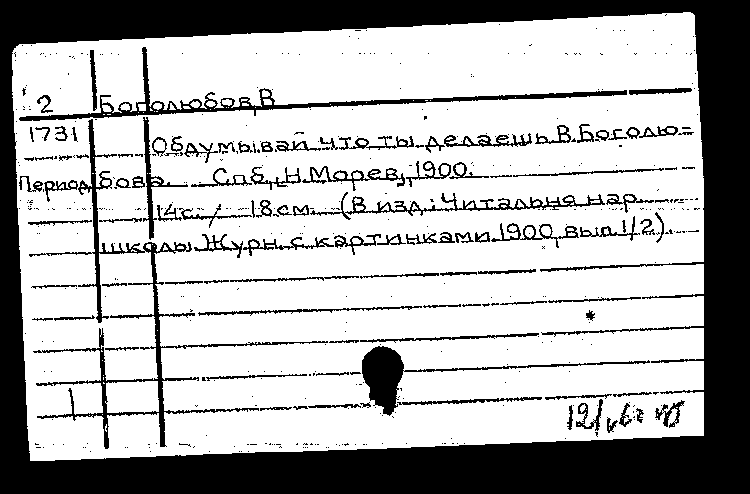 2 Боголюбов, В
1731 Обдумывай что ты делаешь В. Боголю=
Период. бова. Спб, „Н. Морев„, 1900.
14с. / 18см. (В изд.: Читальня нар.
школы Журн. с картинками. 1900, вып 1/2).
*
12/